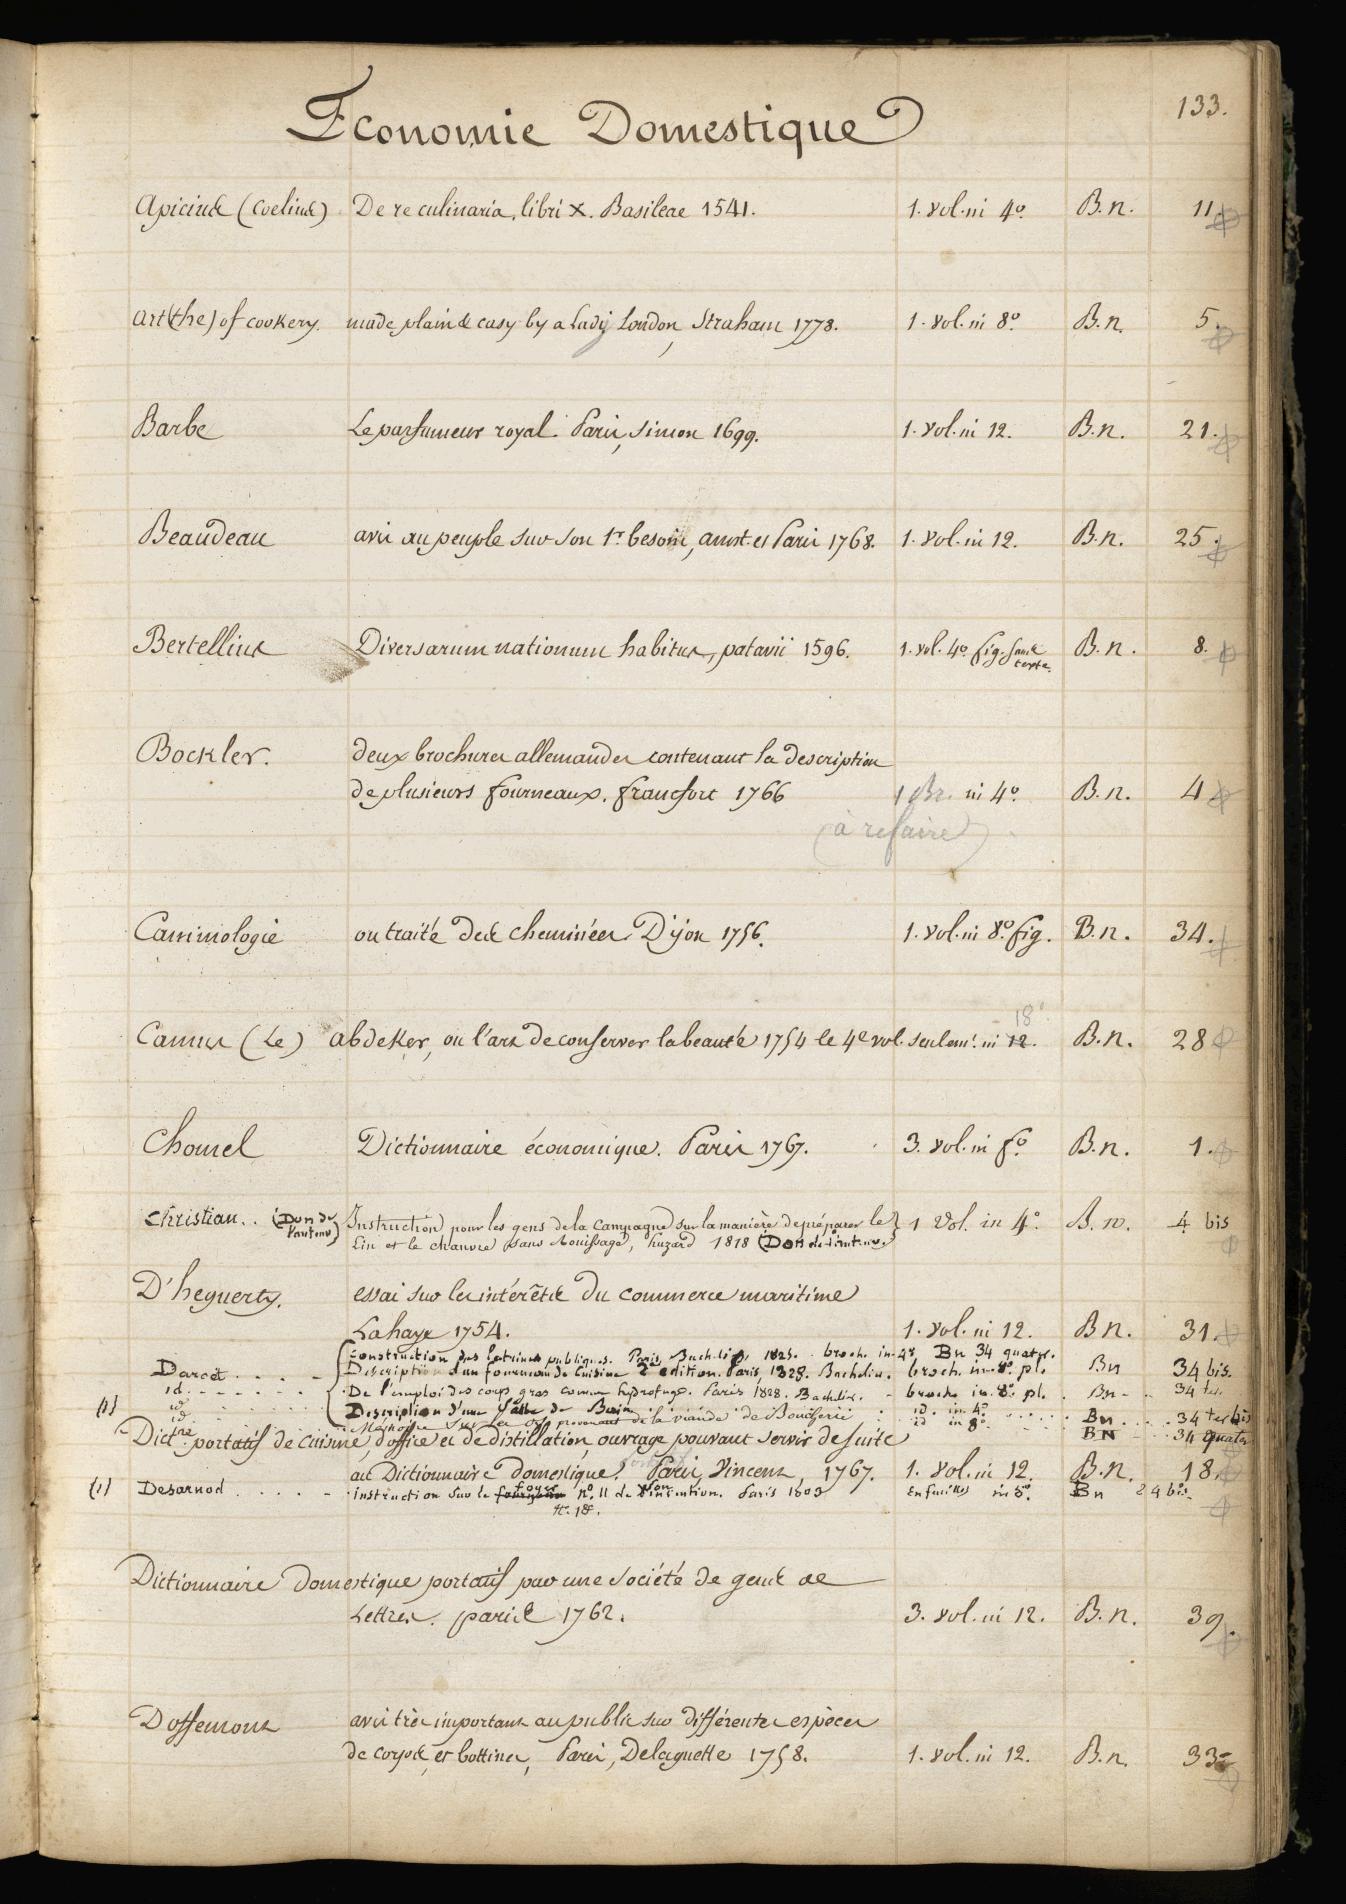 133.
Economie Domestique
Apicius (Coelius) De re culinaria, libri X. Basileae 1541. 1. vol. in 4º. B.n. 11.
art (the) of cookery. made plain & easy by a Lady London, Straham 1778. 1. vol. in 8º. B.n. 5.
Barbe Le parfumeur royal. Paris, Simon 1699. 1. vol. in 12. B.n. 21.
Beaudeau avis au peuple sur son 1r besoin, amst. et Paris 1768. 1. vol. in 12. B.n. 25.
Bertellius Diversarum nationum habitus, patavii 1596. 1. vol. 4º. fig. sans B.n. 8.
texte.
Bockler. deux brochures allemandes contenant la description
de plusieurs fourneaux. francfort 1766 1 Br. in 4º. B.n. 4
(à refaire)
Caminologie ou traité des cheminées. Dijon 1756. 1. vol. in 8º. fig. B.n. 34.
18
Camus (Le) abdeker, ou l'art de conserver la beauté 1754 le 4e vol. seulemt. in 12. B.n. 28
Chomel Dictionnaire économique. Paris 1767. 3. vol. in fº. B.n. 1.
Christian.. (Don de Instruction pour les gens de la Campagne sur la manière de préparer le 1 Vol. in 4º. B.n. 4 bis
l'auteur) Lin et le chanvre sans Rouissage, huzard 1818 (Don de l'auteur.)
D'heguerty. essai sur les intérêts du commerce maritime
La haye 1754. 1. vol. in 12. B n. 31.
Construction des latrines publiques. Paris, Bachelier, 1825. broch. in-4º. Bn 34 quatr.
Darcet . . . . Description d'un fourneau de Cuisine 2e edition. Paris, 1828. Bachelier. broch. in-8º. pl. Bn 34 bis.
id. - - - - - - - De l'emploi des corps gras comme hydrofuge. Paris 1828. Bachelier. - broch. in-8º. pl. Bn - - 34 ter.
(1) id Description d'une Salle de Bain id. in 4º Bn . . . . 34 ter bis
id Mémoire sur les os provenant de la viande de Boucherie id in 8º. BN 34 quater
Dictre. portatif de cuisine, d'office et de distillation, ouvrage pouvant servir de suite
au Dictionnaire domestique. Paris, Vincent, 1767. 1. vol. in 12. B.n. 18.
foyer
(1) Desarnod . . . . - instruction sur le fourneau nº. 11 de son invention. Paris 1803 en feuilles in 8º. Bn 24 bis.
Dictionnaire domestique portatif par une société de gens de
Lettres. paris 1762. 3. vol. in 12. B.n. 39.
Doffemont avis très important au public sur différentes espèces
de corps et bottines, Paris, Delaguette 1758. 1. vol. in 12. B.n. 33